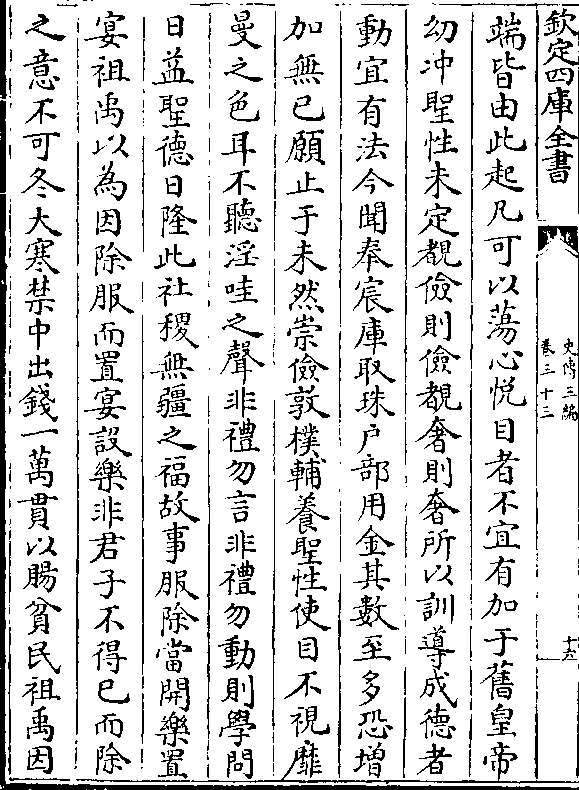 欽定四庫全書
史傳三編
卷三十三
十六
端皆由此起凡可以蕩心悅目者不宜有加于舊皇帝
幼冲聖性未定覩儉則儉覩奢則奢所以訓導成德者
動宜有法今聞奉宸庫取珠户部用金其數至多恐增
加無已願止于未然崇儉敦樸輔養聖性使目不視靡
曼之色耳不聽淫哇之聲非禮勿言非禮勿動則學問
日益聖德日隆此社稷無疆之福故事服除當開樂置
宴祖禹以為因除服而置宴設樂非君子不得已而除
之意不可冬大寒禁中出錢一萬貫以賜貧民祖禹因